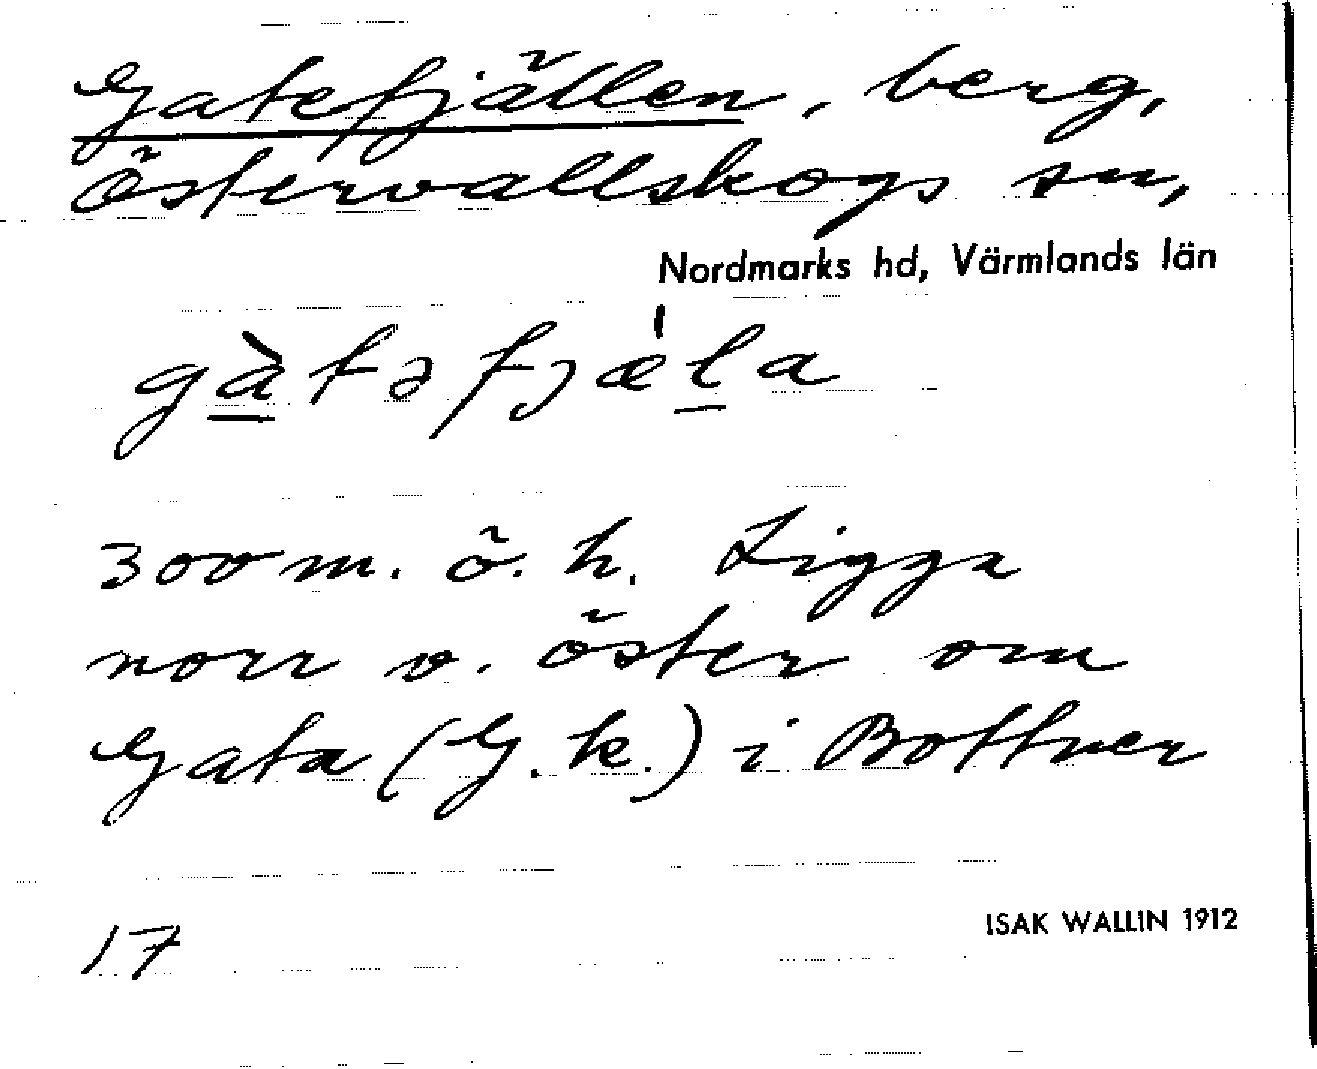 Gatefjällen, berg,
Östervallskogs sn,
Nordmarks hd, Värmlands län
gàtəfjæ̍la
300 m. ö. h. Ligga
norr o. öster om
Gata (G. k.) i Bottner
17
ISAK WALLIN 1912